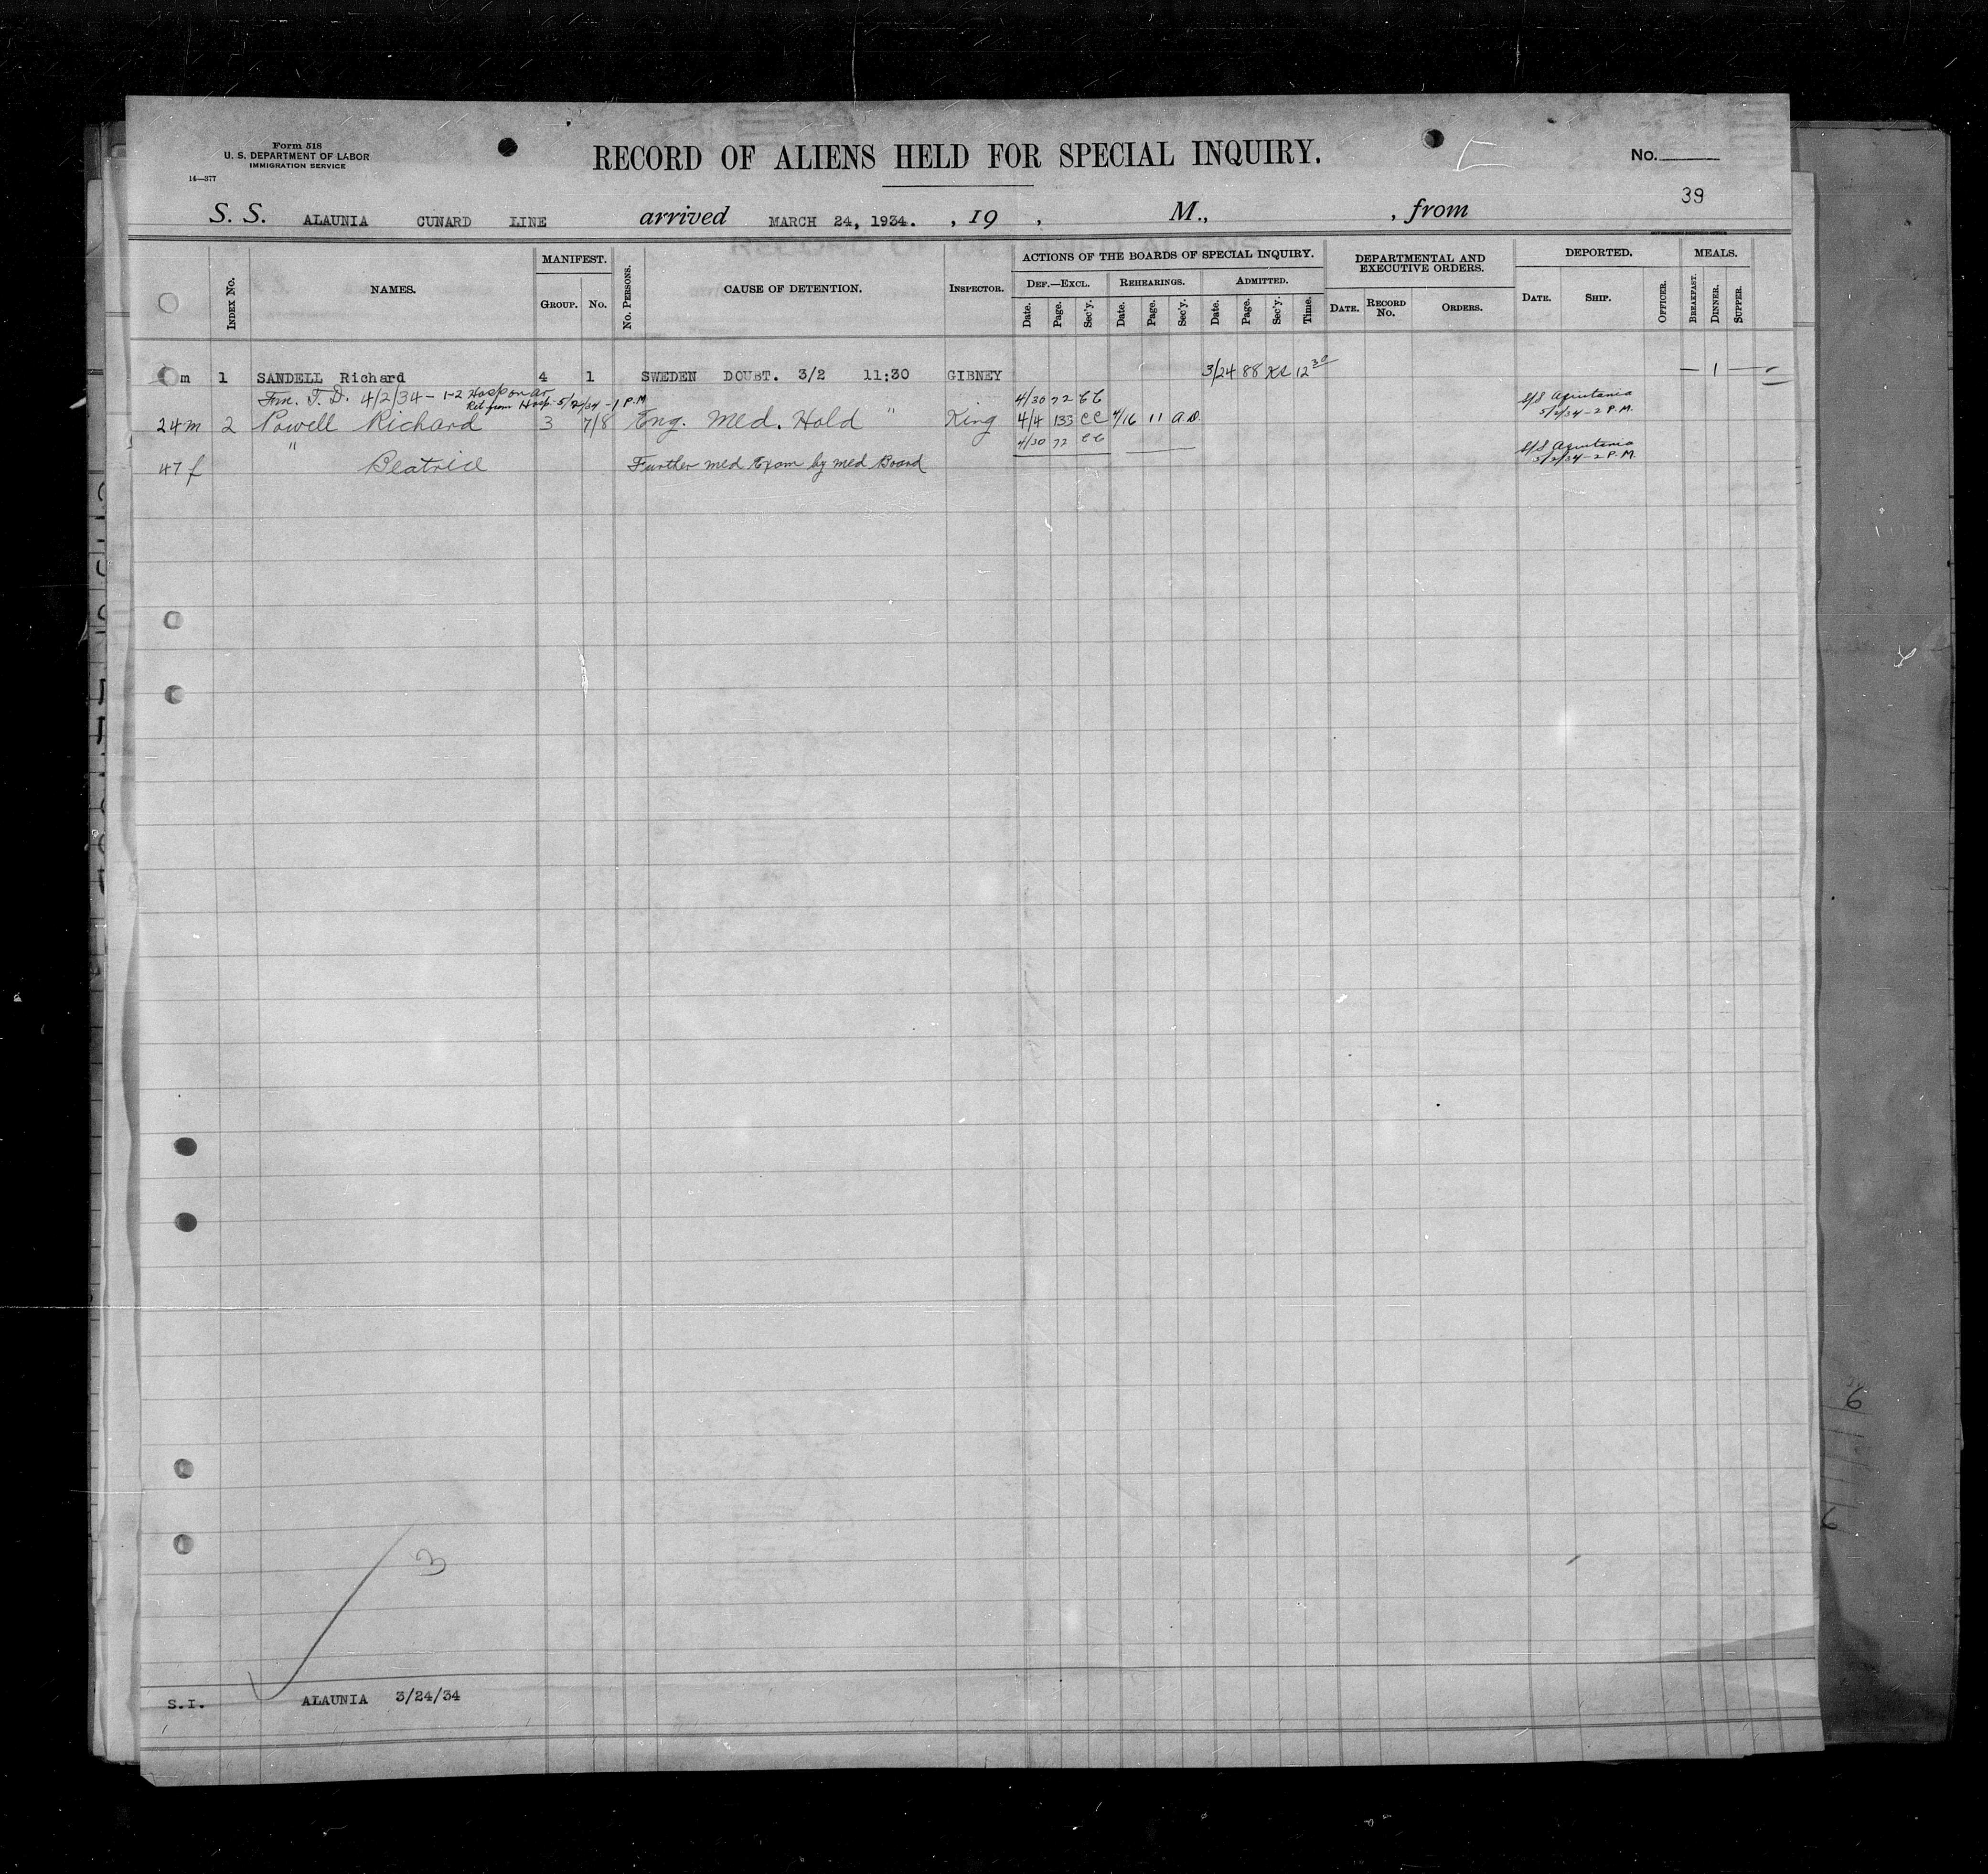 Form 518
U. S. DEPARTMENT OF LABOR
IMMIGRATION SERVICE
14—377
RECORD OF ALIENS HELD FOR SPECIAL INQUIRY.
No.
39
S. S. ALAUNIA CUNARD LINE arrived MARCH 24, 1934. , 19 , M., , from
INDEX NO. NAMES. MANIFEST. GROUP. NO. NO. PERSONS. CAUSE OF DETENTION. INSPECTOR. ACTIONS OF THE BOARDS OF SPECIAL INQUIRY. DEF.—EXCL. Date. Page. Sec'y. REHEARINGS. Date. Page. Sec'y. ADMITTED. Date. Page. Sec'y. Time. DEPARTMENTAL AND EXECUTIVE ORDERS. DATE. RECORD NO. ORDERS. DEPORTED. DATE. SHIP. OFFICER. MEALS. BREAKFAST. DINNER. SUPPER.
m 1 SANDELL Richard 4 1 SWEDEN DOUBT. 3/2 11:30 GIBNEY 3/24 88 12 30 — 1 —
T. D. 4/2/34 – 1-2 Hosp on ar 4/30 72 S/S Aquitania
Rel from Hosp. 5/2/34 – 1 P.M. 5/2/34 – 2 P.M.
24 m 2 Powell Richard 3 7/8 Eng. Med. Hold " King 4/4 133 CC 4/16 11 A.D.
4/30 72 S/S Aquitania
47 f " Beatrice Further med Exam by med Board 5/2/34 – 2 P.M.
3
S.I. ALAUNIA 3/24/34
6
6